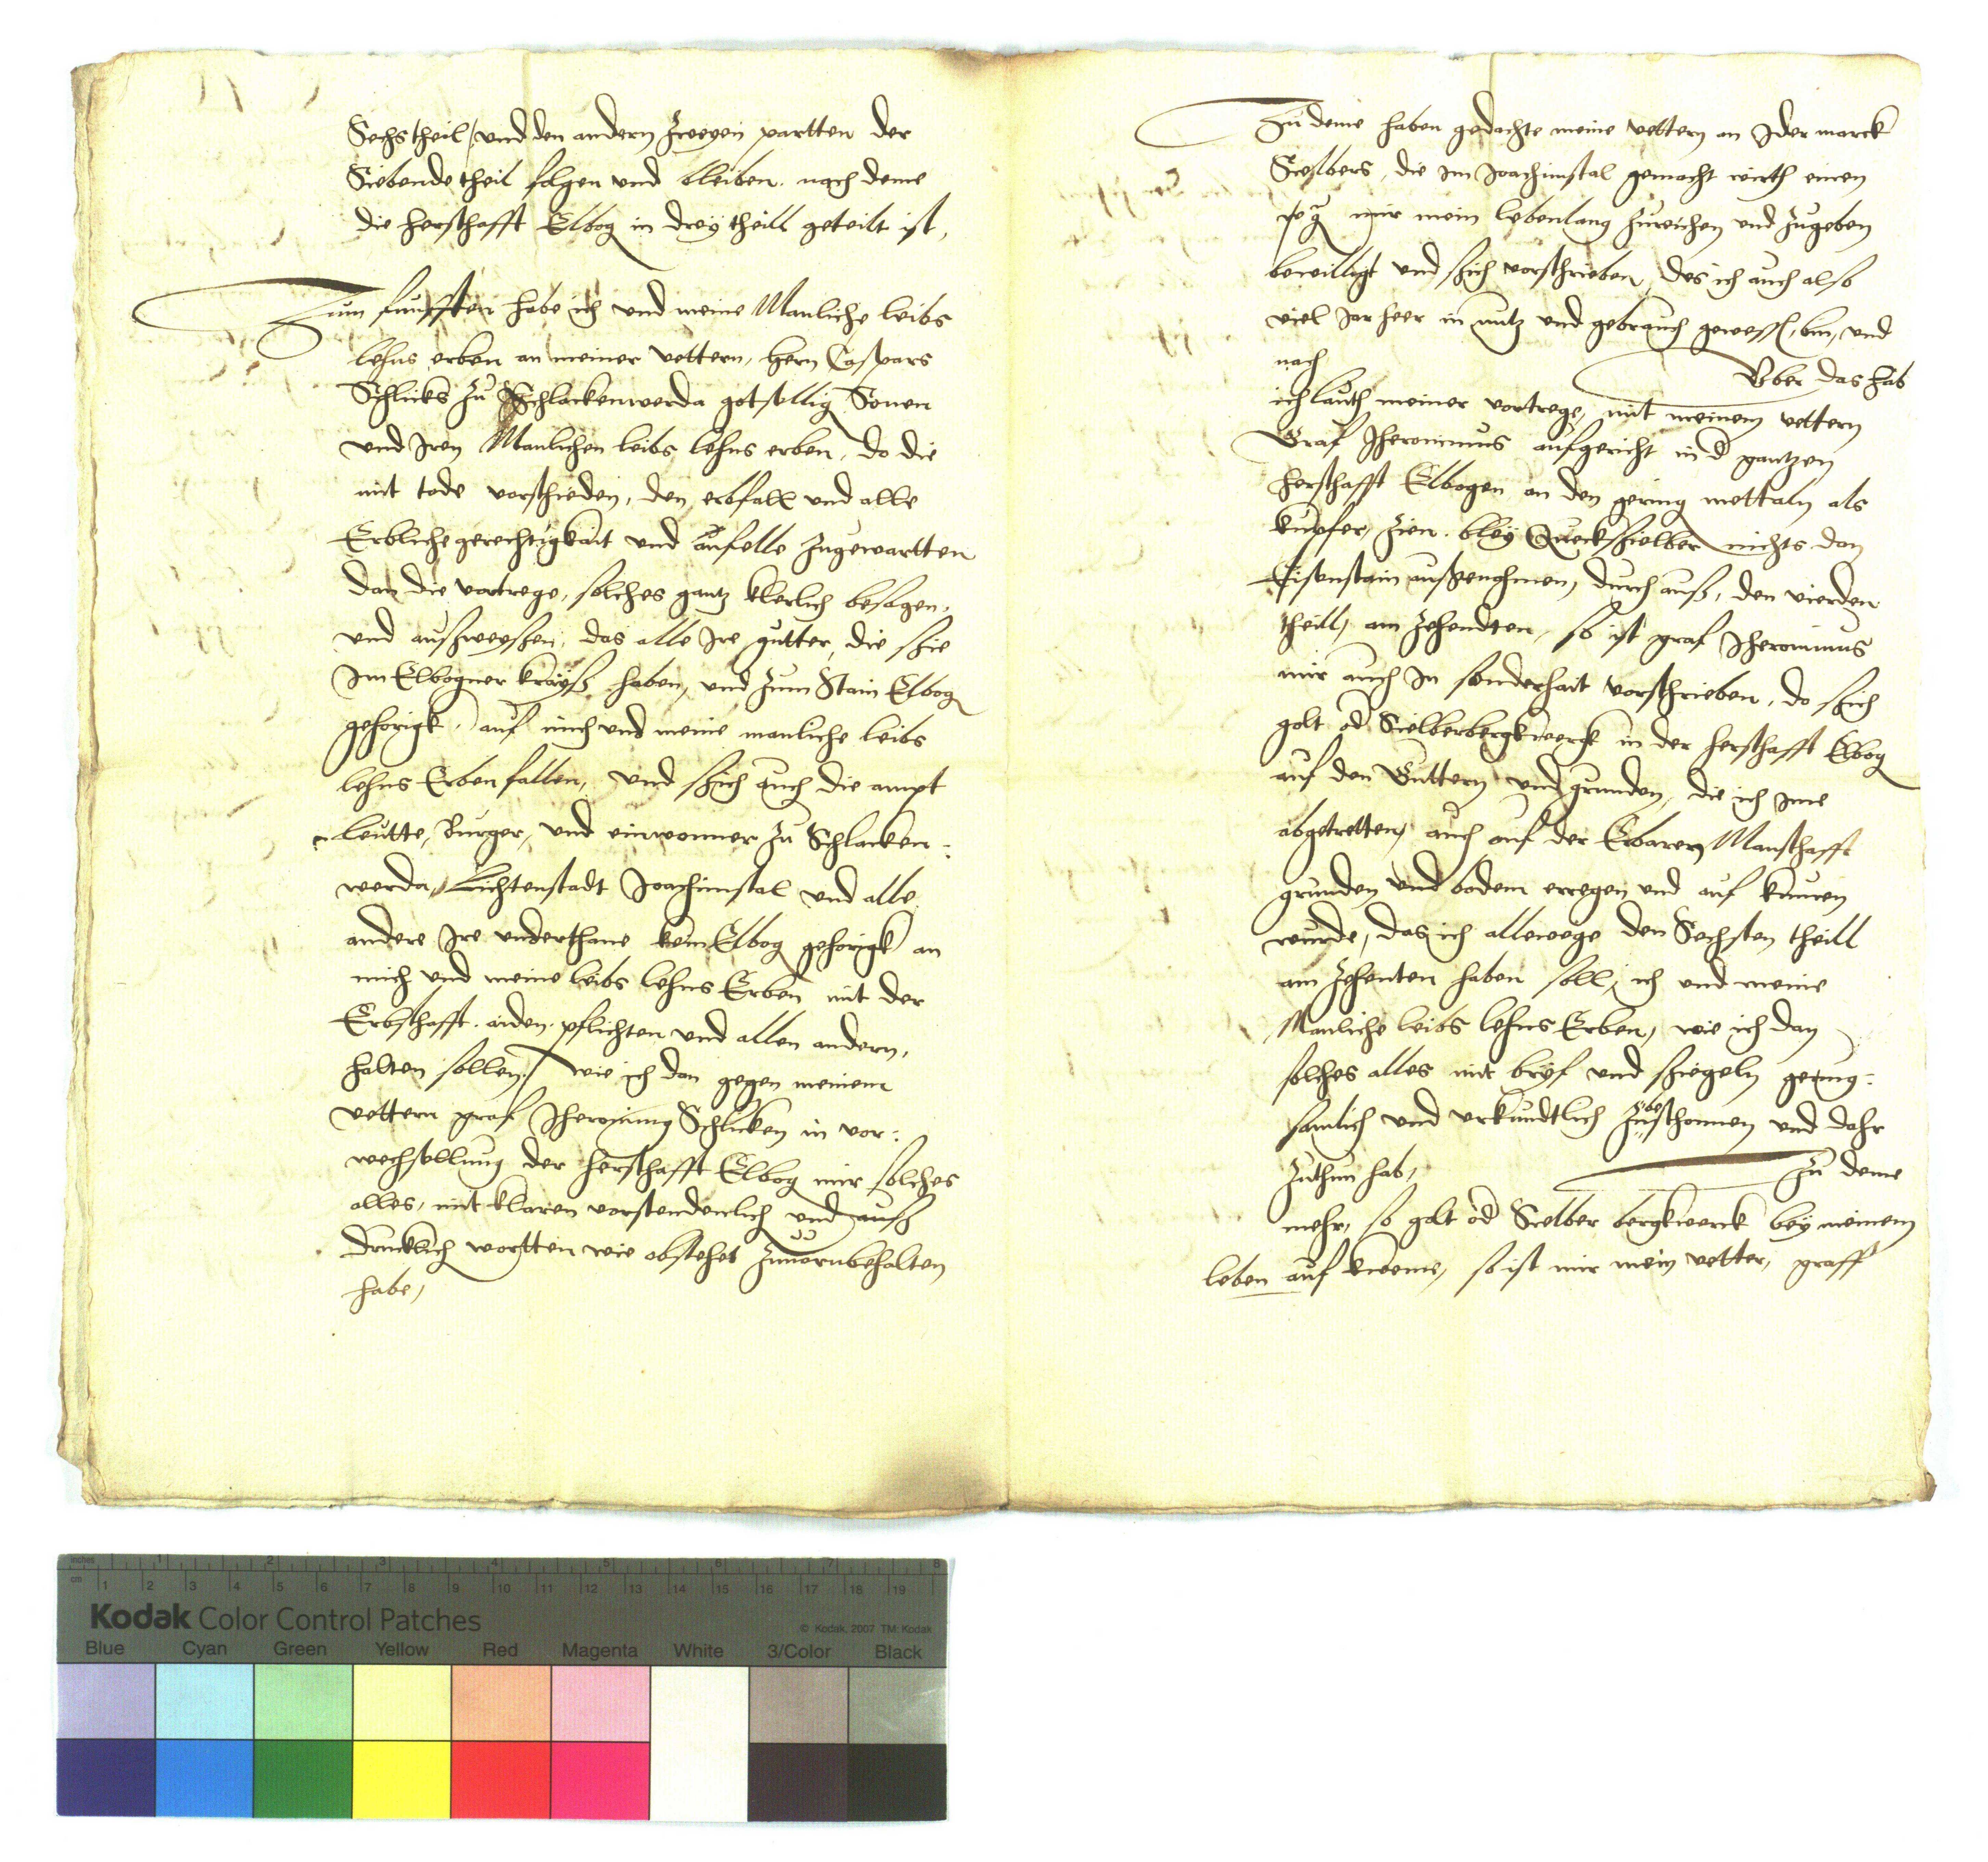 Sechstheil, und den andern zweyen partten der
Siebende theil folgen und bleiben. nach deme
die herschafft Elbog in drey theill geteilt ist,
Zum funfften habe ich und meine Manliche leibs
lehns erben an meiner vettern, hern Caspars
Schlicks zu Schlackenwerda gotsellig Sonen
und Iren Manlichen leibs lehns erben, do die
mit tode vorschieden, den erbfall und alle
Erbliche gerechtigkait und anfelle zugewartten
dan die vortrege, solches gantz klerlich besagen,
und ausweyssen, das alle Ire gutter, die sie
Im Elbogner krayß haben, und zum Stain Elbog
gehorigk, auf mich und meine manliche leibs
lehns Erben fallen, und sich auch die ampt
leutte, Burger, und einwonner zu Schlacken:
werda, Lichtenstadt Joachimstal und alle
andere Ire underthane kein Elbog gehorigk an
mich und meine leibs lehns Erben mit der
Erbschafft. aiden. pflichten und allen andern,
halten sollen, wie ich dan gegen meinem
vettern graf Iheronimus Schlicken in vor:
wechsellung der herschafft Elbog mir solches
alles, mit klaren vorstendenlich und auß
drucklich wortten wie obstehet zuvornbehalten
habe,
Zu deme haben gedachte meine vettern an Ider marck
Sielbers, die im Joachimstal gemacht wirth einen
mir mein lebenlang zureichen und zugeben
bewilligt und sich vorschrieben, des ich auch also
viel Jar heer in nutz und gebrauch gewess, bin, und
nach
Uber das hab
ich lauth meiner vortrege, mit meinem vettern
Graf Iheronimus aufgericht in d gantzen
herschafft Elbogen an den gering mettaln als
kupfer, zien. bley Queksielber nichts dan
Eisenstain ausgenohmen, durch auß, den vierden
theill, am zehendten, so ist graf Iheronimus
mir auch In sonderhait vorschrieben, do sich
golt od Sielberbergkwerck in der herschafft Elbog
auf den Guttern und grunden, die ich Ime
abgetretten, auch auf der Erbaren Manschafft
grunden und bodem erregen und auf kumen
wurde, das ich allewege den Sechsten theill
am zehenten haben soll, ich und meine
Manliche leibs lehns Erben, wie ich dan
solches alles mit bryf und siegeln genug:
samlich und urkundtlich zubeschonnen und dahr
zuthun hab,
Zu deme
mehr, so golt od Sielber bergkwerck bey meinem
leben auf kweme, so ist mir mein vetter, graff
inches 1 2 3 4 5 6 7 8
cm 1 2 3 4 5 6 7 8 9 10 11 12 13 14 15 16 17 18 19
Kodak Color Control Patches
© Kodak, 2007 TM: Kodak
Blue Cyan Green Yellow Red Magenta White 3/Color Black